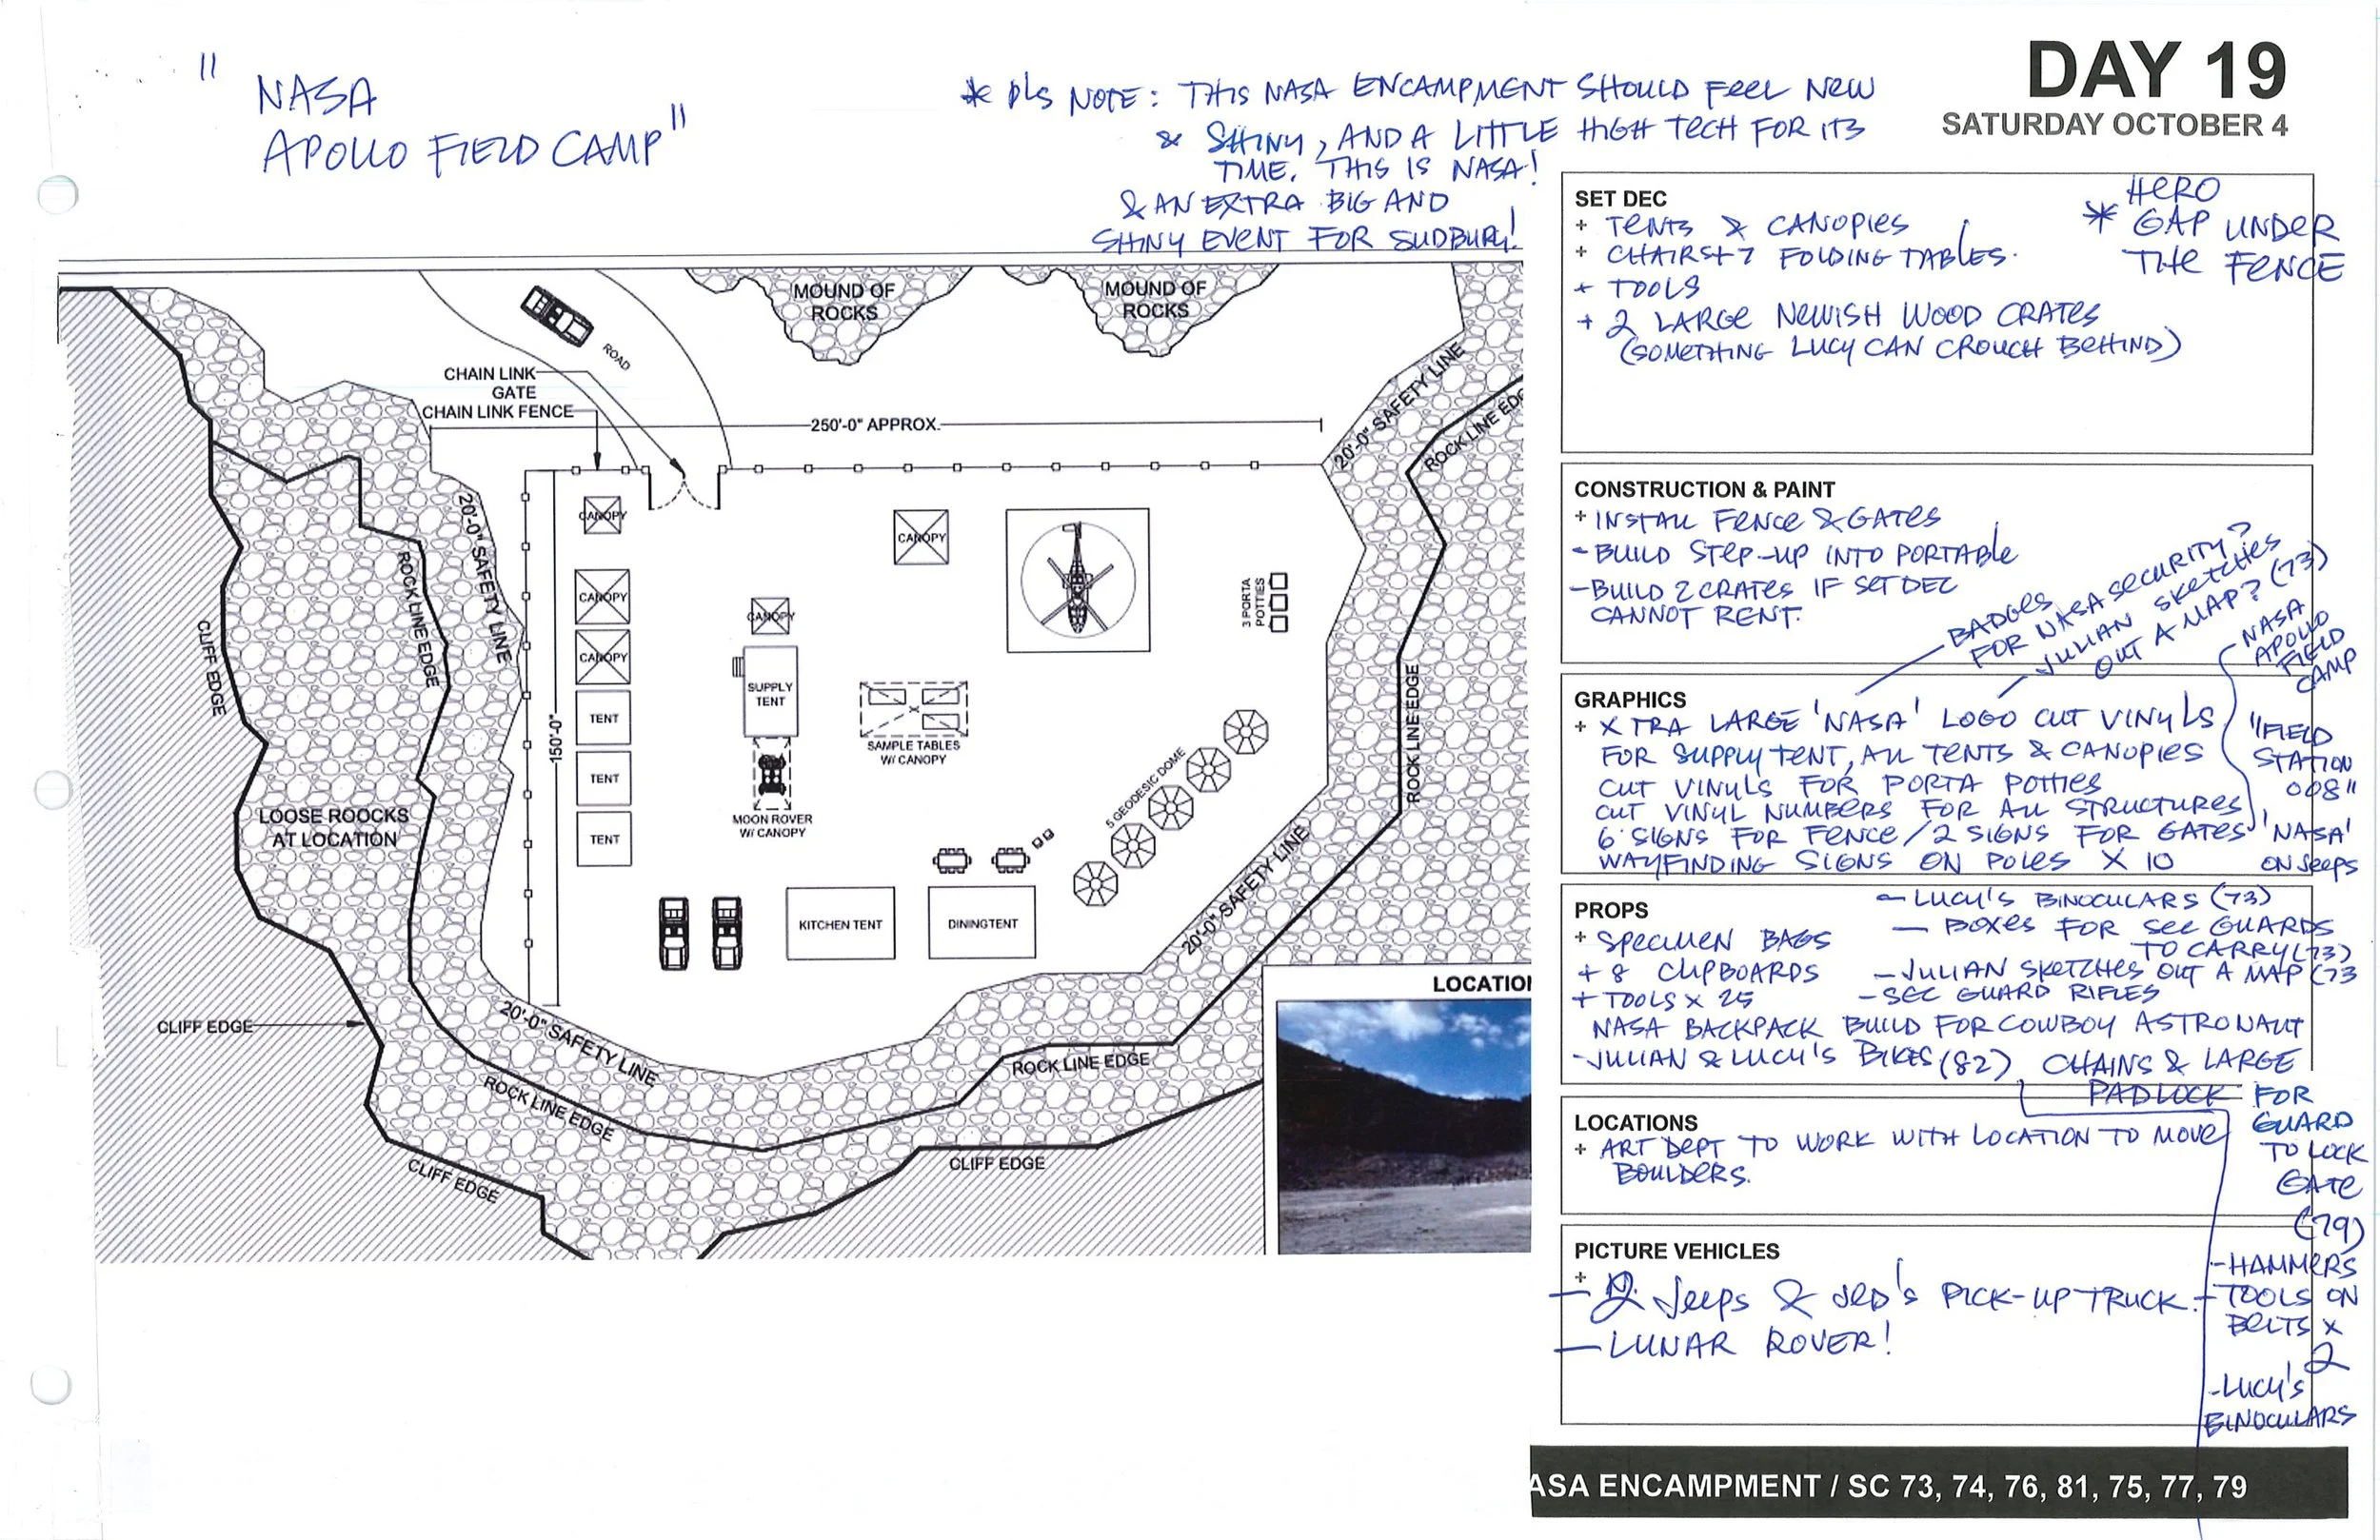 " NASA
APOLLO FIELD CAMP"
* pls NOTE: THIS NASA ENCAMPMENT SHOULD FEEL NEW
& SHINY, AND A LITTLE HIGH TECH FOR ITS
TIME. THIS IS NASA!
& AN EXTRA BIG AND
SHINY EVENT FOR SUDBURY!
DAY 19
SATURDAY OCTOBER 4
MOUND OF
ROCKS
MOUND OF
ROCKS
ROAD
CHAIN LINK
GATE
CHAIN LINK FENCE
250'-0" APPROX.
20'-0" SAFETY LINE
ROCK LINE EDG
20'-0" SAFETY LINE
ROCK LINE EDGE
CLIFF EDGE
150'-0"
CANOPY
CANOPY
CANOPY
TENT
TENT
TENT
CANOPY
CANOPY
SUPPLY
TENT
MOON ROVER
W/ CANOPY
SAMPLE TABLES
W/ CANOPY
3 PORTA
POTTIES
5 GEODESIC DOME
ROCK LINE EDGE
LOOSE ROOCKS
AT LOCATION
KITCHEN TENT
DININGTENT
20'-0" SAFETY LINE
CLIFF EDGE
20'-0" SAFETY LINE
ROCK LINE EDGE
ROCK LINE EDGE
CLIFF EDGE
CLIFF EDGE
LOCATIO
SET DEC
+ TENTS & CANOPIES
+ CHAIRS + 7 FOLDING TABLES.
+ TOOLS
+ 2 LARGE NEWISH WOOD CRATES
(SOMETHING LUCY CAN CROUCH BEHIND)
HERO
* GAP UNDER
THE FENCE
CONSTRUCTION & PAINT
+ INSTALL FENCE & GATES
- BUILD STEP-UP INTO PORTABLE
- BUILD 2 CRATES IF SET DEC
CANNOT RENT.
BADGES
FOR NASA SECURITY?
JULIAN SKETCHES
OUT A MAP? (73)
NASA
APOLLO
FIELD
CAMP
GRAPHICS
+ XTRA LARGE 'NASA' LOGO CUT VINYLS
FOR SUPPLY TENT, ALL TENTS & CANOPIES
CUT VINYLS FOR PORTA POTTIES
CUT VINYL NUMBERS FOR ALL STRUCTURES
6 SIGNS FOR FENCE / 2 SIGNS FOR GATES
WAYFINDING SIGNS ON POLES X 10
"FIELD
STATION
008"
'NASA'
ON JEEPS
PROPS
+ SPECIMEN BAGS
+ 8 CLIPBOARDS
+ TOOLS x 25
- LUCY'S BINOCULARS (73)
- BOXES FOR SEC GUARDS
TO CARRY (73)
- JULIAN SKETCHES OUT A MAP (73
- SEC GUARD RIFLES
NASA BACKPACK BUILD FOR COWBOY ASTRONAUT
- JULIAN & LUCY'S BIKES (82)
CHAINS & LARGE
PADLOCK FOR
GUARD
TO LOCK
GATE
(79)
- HAMMERS
TOOLS ON
BELTS x
2
- LUCY'S
BINOCULARS
LOCATIONS
+ ART DEPT TO WORK WITH LOCATION TO MOVE
BOULDERS.
PICTURE VEHICLES
+
- 2 Jeeps & JED'S PICK-UP TRUCK.
- LUNAR ROVER!
ASA ENCAMPMENT / SC 73, 74, 76, 81, 75, 77, 79